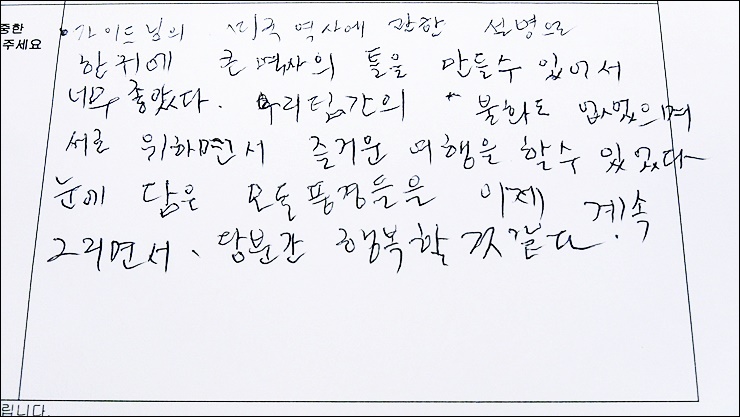 중한
주세요
• 가이드님의 미국 역사에 관한 설명으로
한귀에 큰 역사의 틀을 만들수 있어서
너무 좋았다. 우리팀간의 불화도 없었으며
서로 위하면서 즐거운 여행을 할수 있었다
눈에 담은 모든 풍경들을 이제 계속
그리면서, 당분간 행복할 것 같다.
립니다.